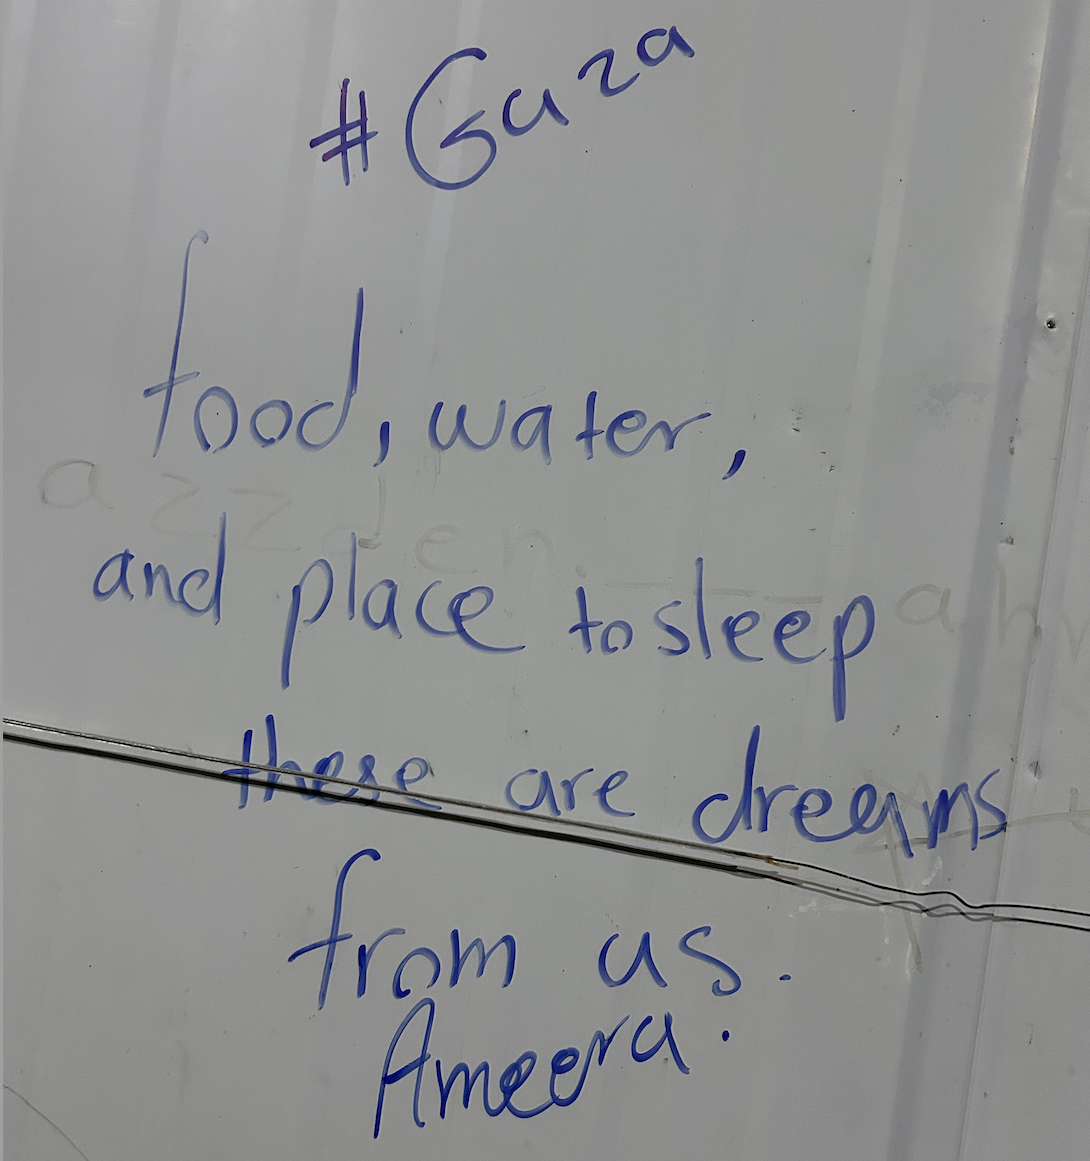 #Gaza
food, water,
azzden.----ah
and place to sleep
these are dreams
from us.
Ameera.